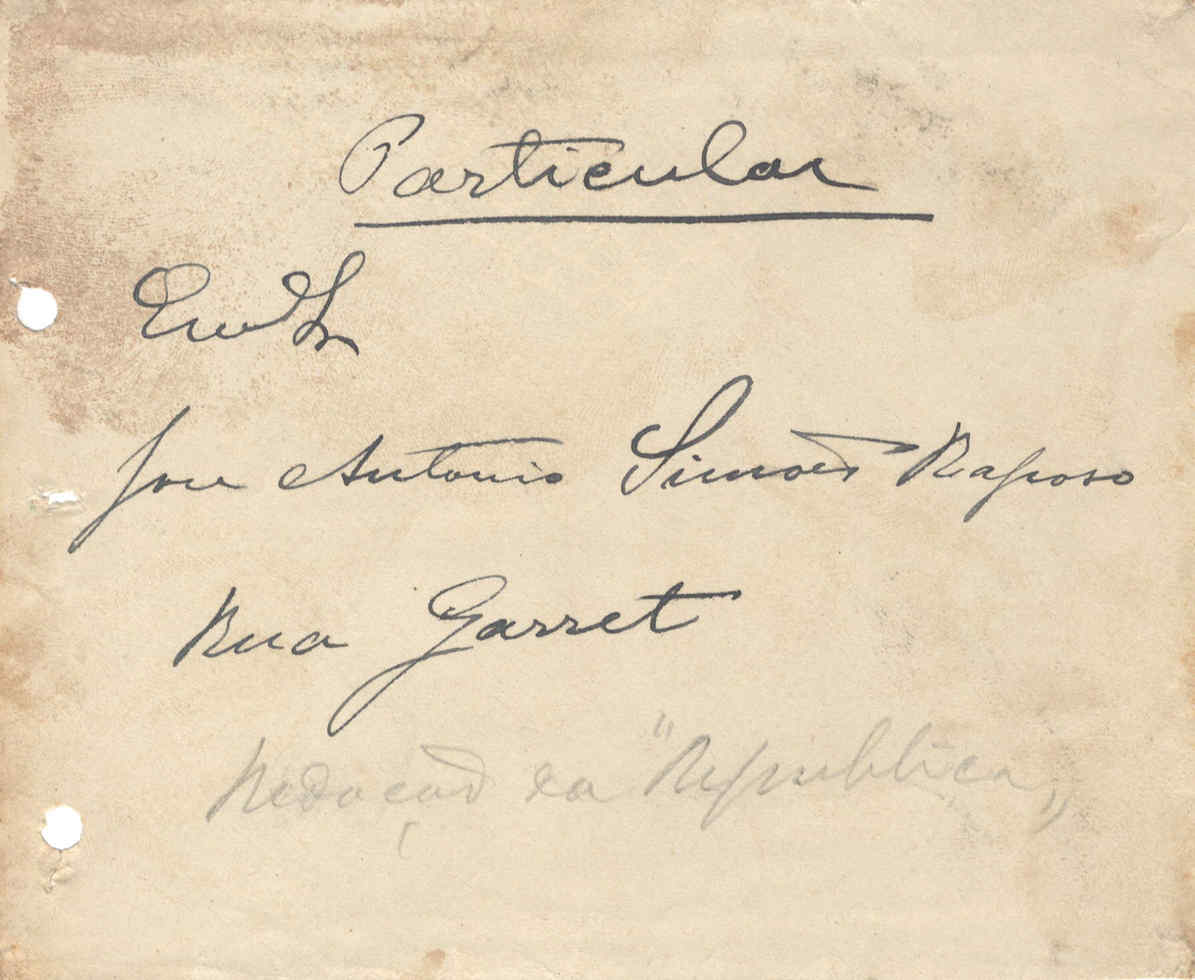 Particular
Exmo Sr
José Antonio Simões Raposo
Rua Garret
Redacção da "Republica"